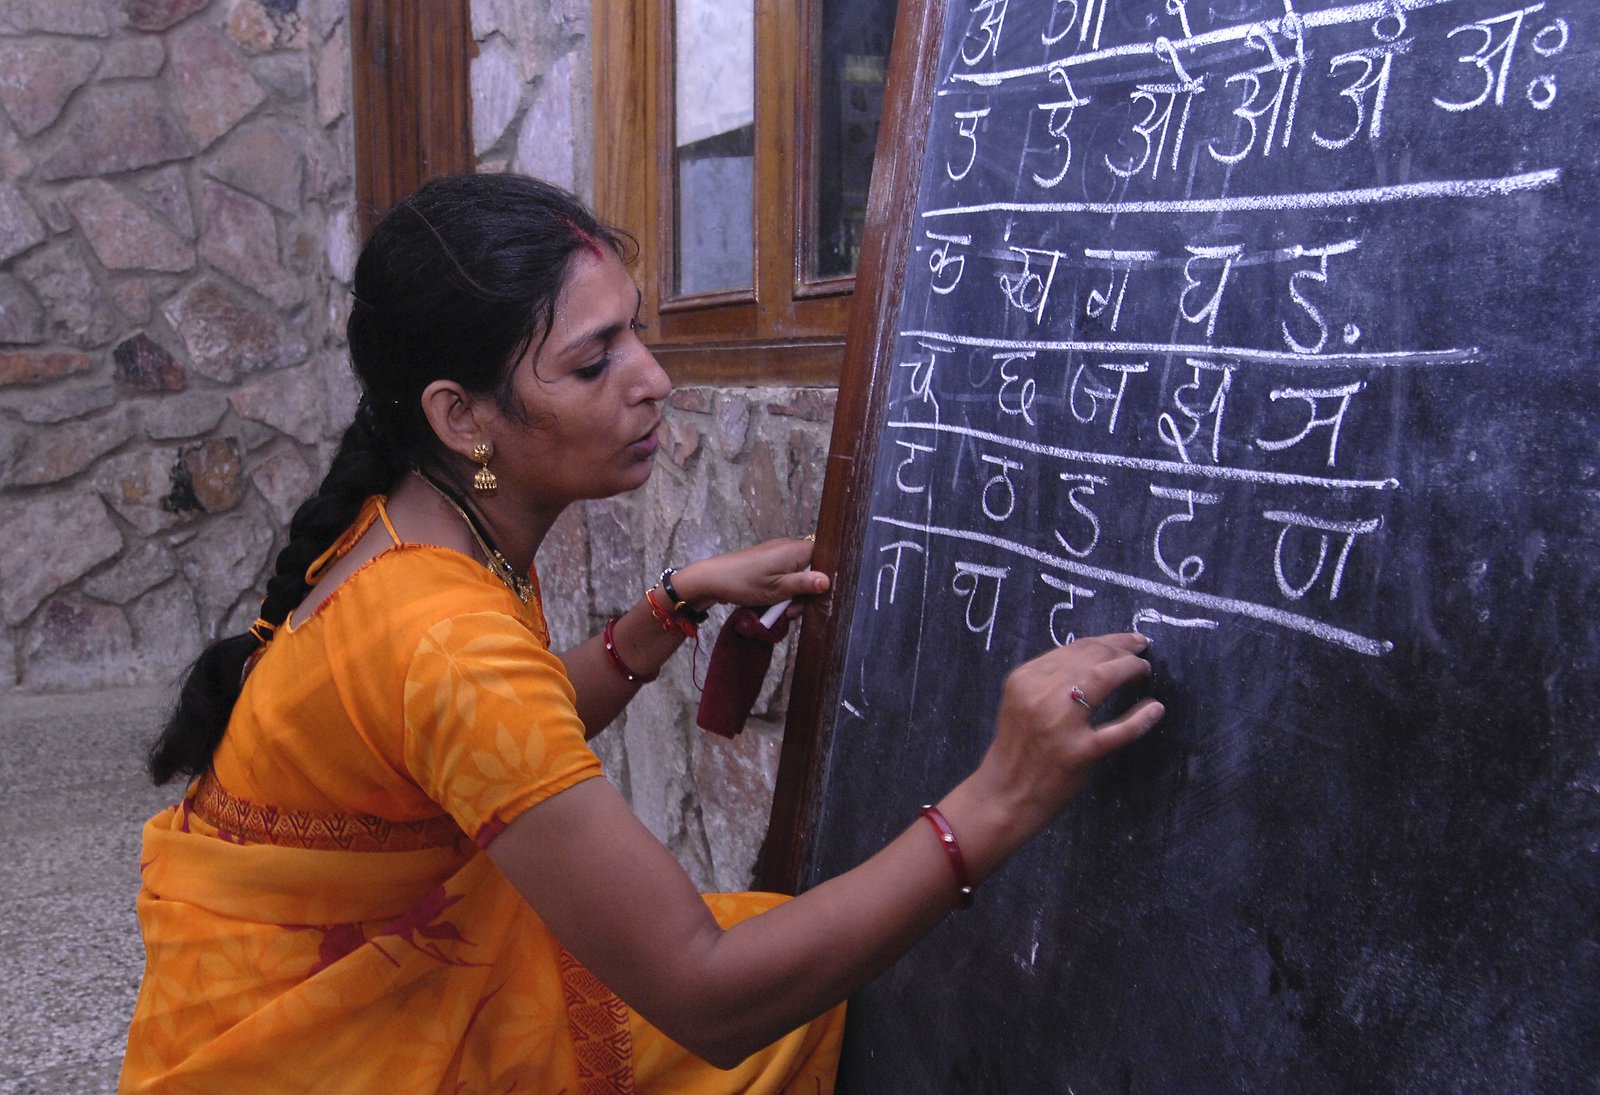 अ आ
ए ऐ ओ औ अं अः
क ख ग घ ङ
च छ ज झ ञ
ट ठ ड ढ ण
त थ द